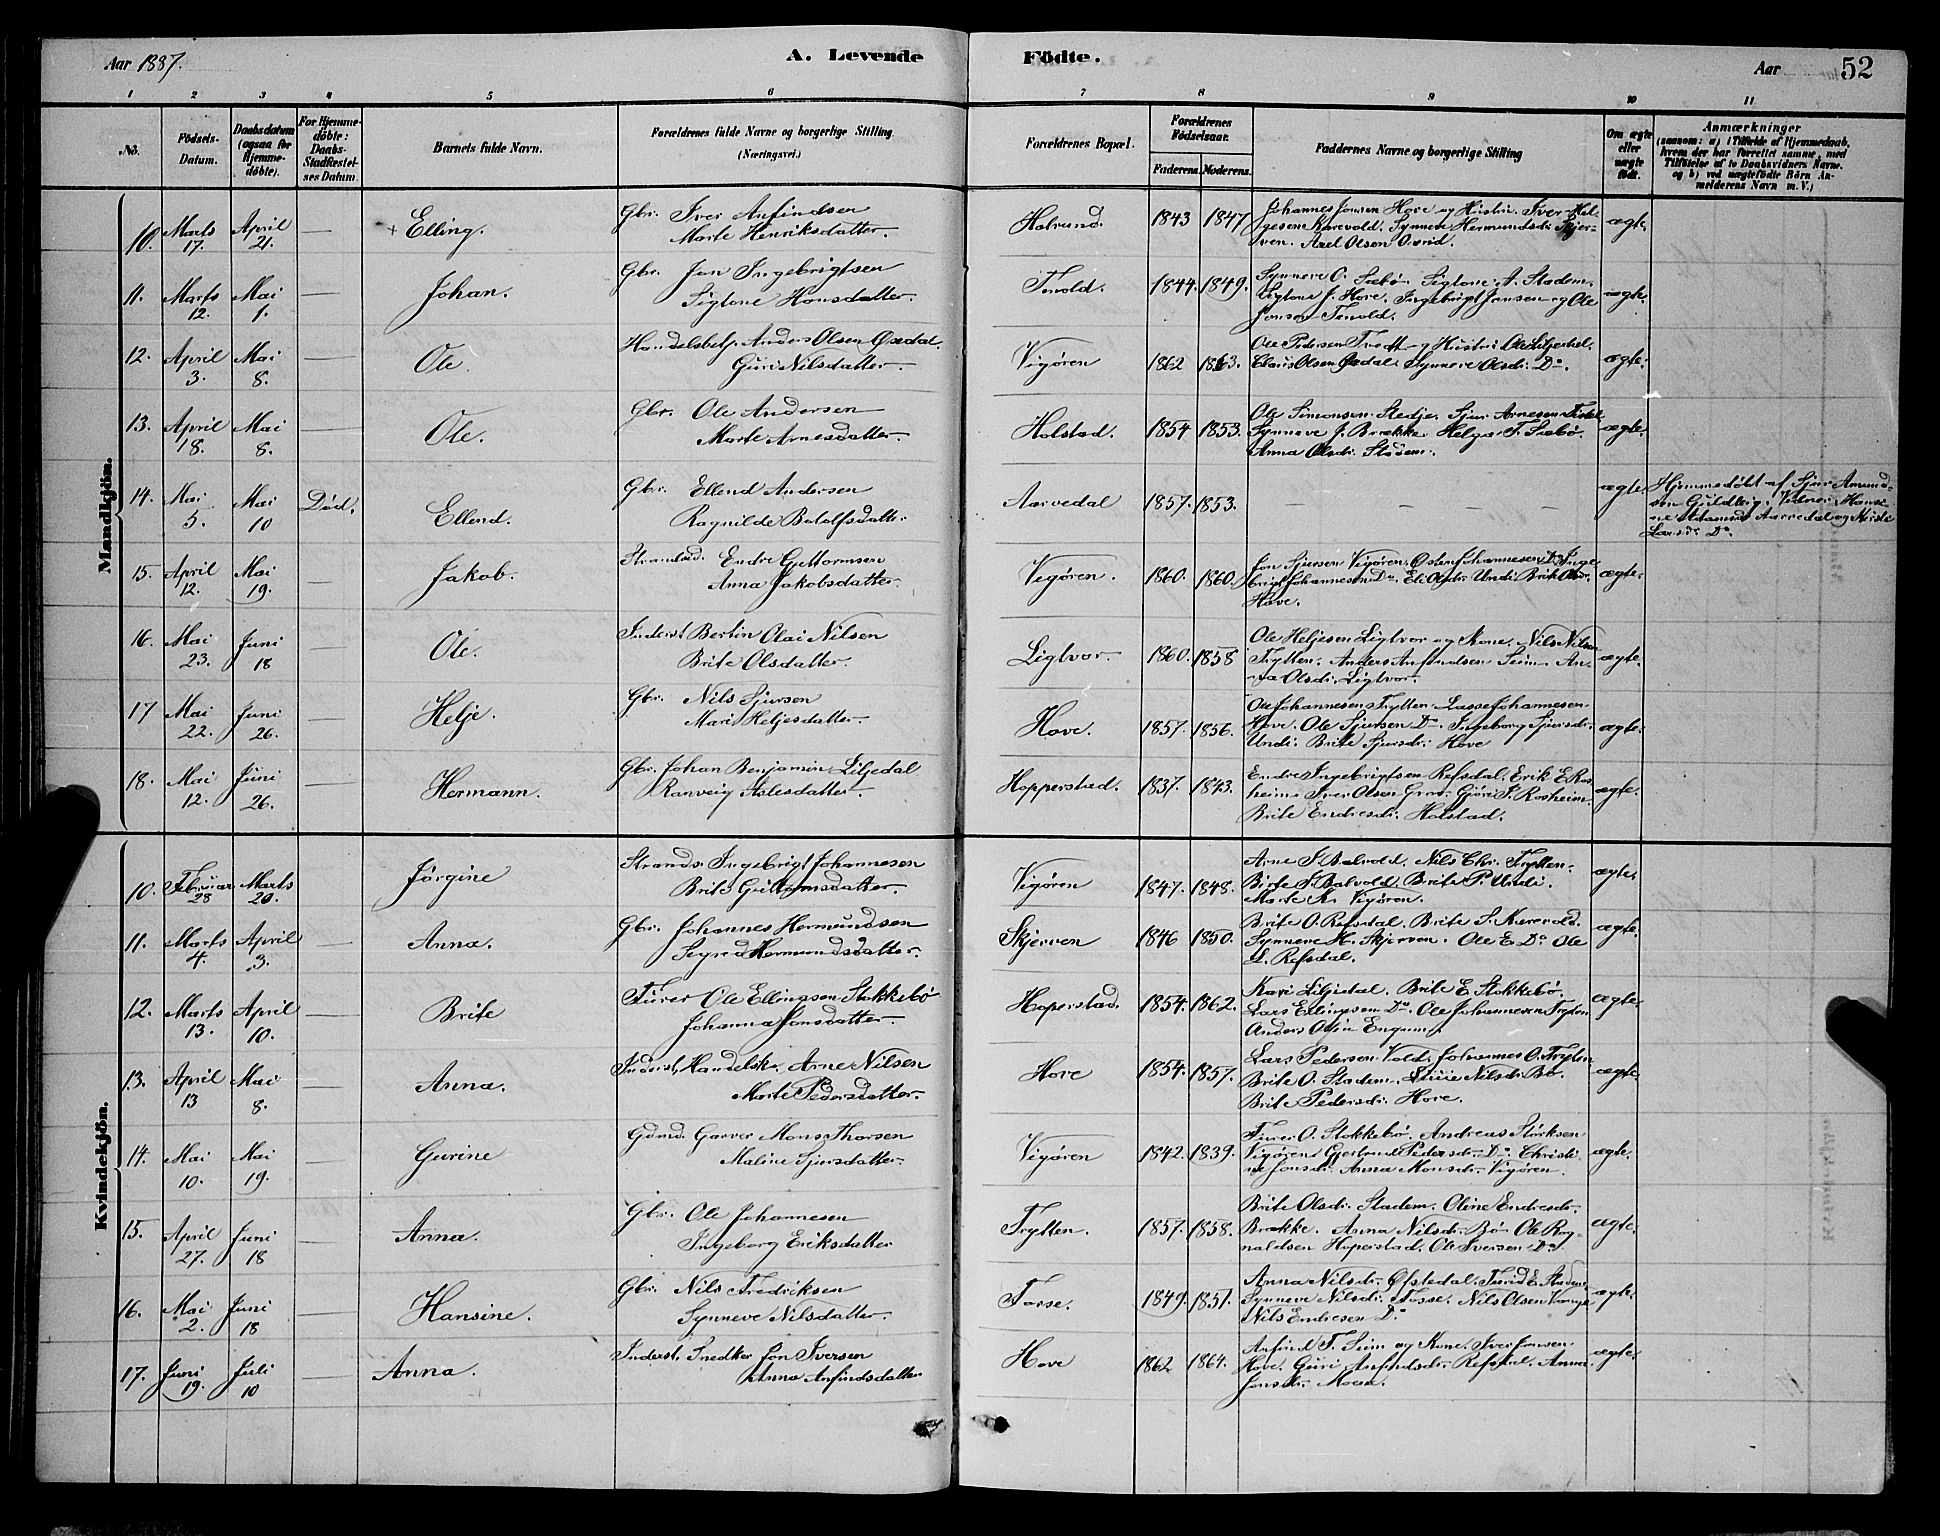 Aar 1887.
A. Levende
Födte.
Aar
52
1 2 3 4 5 6 7 8 9 10 11
No.
Födsels-
Datum.
Daabsdatum
(ogsaa for
Hjemme-
döbte).
For Hjemme-
döbte:
Daabs-
Stadfæstel-
ses Datum.
Barnets fulde Navn.
Forældrenes fulde Navne og borgerlige Stilling.
(Næringsvei.)
Forældrenes Bopæl.
Forældrenes
Födselsaar.
Faderens. Moderens.
Faddernes Navne og borgerlige Stilling
Om ægte
eller
uægte
födt.
Anmærkninger
(saasom: a) i Tilfælde af Hjemmedaab,
hvem der har forrettet samme, med
Tilföielse af to Daabsvidners Navne.
og b) ved uægtefödte Börn An-
melderens Navn m. V.)
Mandkjön.
10. Marts 17. April 21. — + Elling. Gbr. Iver Anfindsen
Marte Henriksdatter.
Holrund. 1843 1847 Johannes Jonsen Hove og Hustru. Iver Hel-
gesen Kurevold. Synneve Hermundsdr. Skjer-
ven. Axel Olsen Ovrid. ægte.
11. Marts 12. Mai 1. — Johan. Gbr. Jon Ingebrigtsen
Sigtone Hansdatter.
Tenold. 1844. 1849. Synneve O. Sæbø. Sigtone A. Stadem.
Sigtone J. Hove. Ingebrigt Jonsen og Ole
Jonsen Tenold. ægte.
12. April 3. Mai 8. — Ole. Handelsbetj. Anders Olsen Øxedal.
Guri Nilsdatter.
Vigøren 1862 1863. Ole Pedersen Tvedt og Hustru. Ole Liljedal.
Claus Olsen Øxdal. Synneve Olsdr. Do. ægte.
13. April 18. Mai 8. — Ole. Gbr. Ole Andersen
Marte Arnesdatter.
Holstad. 1854 1853. Ole Simonsen Stedje. Sjur Arnesen
Synneve J. Brække. Helga T. Sæbø.
Anna Olsdr. Stadem. ægte.
14. Mai 5. Mai 10 Död. Ellend. Gbr. Ellend Andersen
Ragnilde Botolfsdatter.
Aarvedal 1857. 1853. — — — ægte. Hjemmedøbt af Sjur Amund-
sen Vidner: Hansi-
ne Aarvedal og Kirsti
Larsdr. Do.
15. April 12. Mai 19. — Jakob. Strandsid. Endre Guttormsen
Anna Jakobsdatter.
Vigøren. 1860. 1860. Jon Sjursen Vigøren. Østen Johannesen Do. Inge-
brigt Johannesen Do. Eli Olsdr. Undi. Brite Olsdr.
Hove. ægte.
16. Mai 23. Juni 18 — Ole. Inderst Bertin Olai Nilsen
Brite Olsdatter.
Ligtvor. 1860. 1858 Ole Heljesen Ligtvor og Kone. Nils Nilsen
Trytten. Anders Anfindsen Seim. An-
na Olsdr. Ligtvor. ægte.
17 Mai 22. Juni 26. — Helje. Gbr. Nils Sjursen
Mari Heljesdatter.
Hove. 1857. 1856. Ole Johannesen Trytten. Lasse Johannesen
Hove. Ole Sjursen Do. Ingeborg Sjursdr.
Undi. Brite Sjursdr. Hove ægte.
18. Mai 12. Juni 26. — Hermann. Gbr. Johan Benjamin Liljedal
Ranveig Aslesdatter.
Hopperstad. 1837. 1843. Endre Ingebrigtsen Refsdal. Erik E. Ros-
heim. Iver Olsen Grov. Gjöri S. Rosheim.
Brite Endresdr. Holstad. ægte.
Kvindekjön.
10. Februar 28 Marts 20. — Jörgine Strands. Ingebrigt Johannesen
Brite Guttormsdatter.
Vigøren 1847. 1848. Arne J. Bolvold. Nils Chr. Trytten.
Birte J. Bolvold. Brite P. Undi.
Marte K. Vigøren. ægte.
11. Marts 4. April 3. — Anna. Gbr. Johannes Hermundsen
Segred Hermundsdatter.
Skjerven 1846 1850. Brite O. Refsdal. Brite S. Kurevold.
Synneve H. Skjerven. Ole E. Do. Ole
L. Refsdal. ægte.
12. Marts 13. April 10. — Brite Furer Ole Ellingsen Stokkebø
Johanna Jonsdatter.
Hoperstad. 1854. 1862. Kari Liljedal. Brite E. Stokkebø.
Lars Ellingsen Do. Ole Johannesen Trytten
Anders Olsen Engum. ægte.
13. April 13 Mai 8. — Anna. Inderst, Handelsk. Arne Nilsen
Marte Pedersdatter.
Hove 1854. 1857. Lars Pedersen Vold. Johannes O. Trytten
Brite O. Stadem. Nilsdr. Bø.
Brite Pedersdr. Hove. ægte.
14. Mai 10. Mai 19. — Gurine Gdmd. Garver Mons Thorsen
Maline Sjursdatter.
Vigøren 1842. 1839. Furer O. Stokkebø. Andreas Störksen
Vigøren. Gjertrude Pedersdr. Do. Christi-
ne Jonsdr. Anna Monsdr. Vigøren. ægte.
15. April 27. Juni 18 — Anna. Gbr. Ole Johannesen
Ingeborg Eriksdatter
Trytten. 1857. 1858. Brite Olsdr. Stadem. Oline Endresdr.
Brække. Anna Nilsdr. Bø. Ole Rog-
naldsen Hoperstad. Ole Iversen Do. ægte.
16. Mai 2. Juni 18 — Hansine. Gbr. Nils Fredriksen
Synneve Nilsdatter.
Fosse. 1849. 1851. Anna Nilsdr. Øfstedal. Turid E. Stadem
Synneve Nilsdr. Fosse. Nils Olsen Vange
Nils Endresen Do. ægte.
17. Juni 19. Juli 10 — Anna. Inderst, Snedker Jon Iversen
Anna Anfindsdatter
Hove 1862 1864. Anfind T. Seim og Kone. Iver Jonsen
Hove. Guri Anfindsdr. Refsdal. Anna
Jonsdr. ægte.